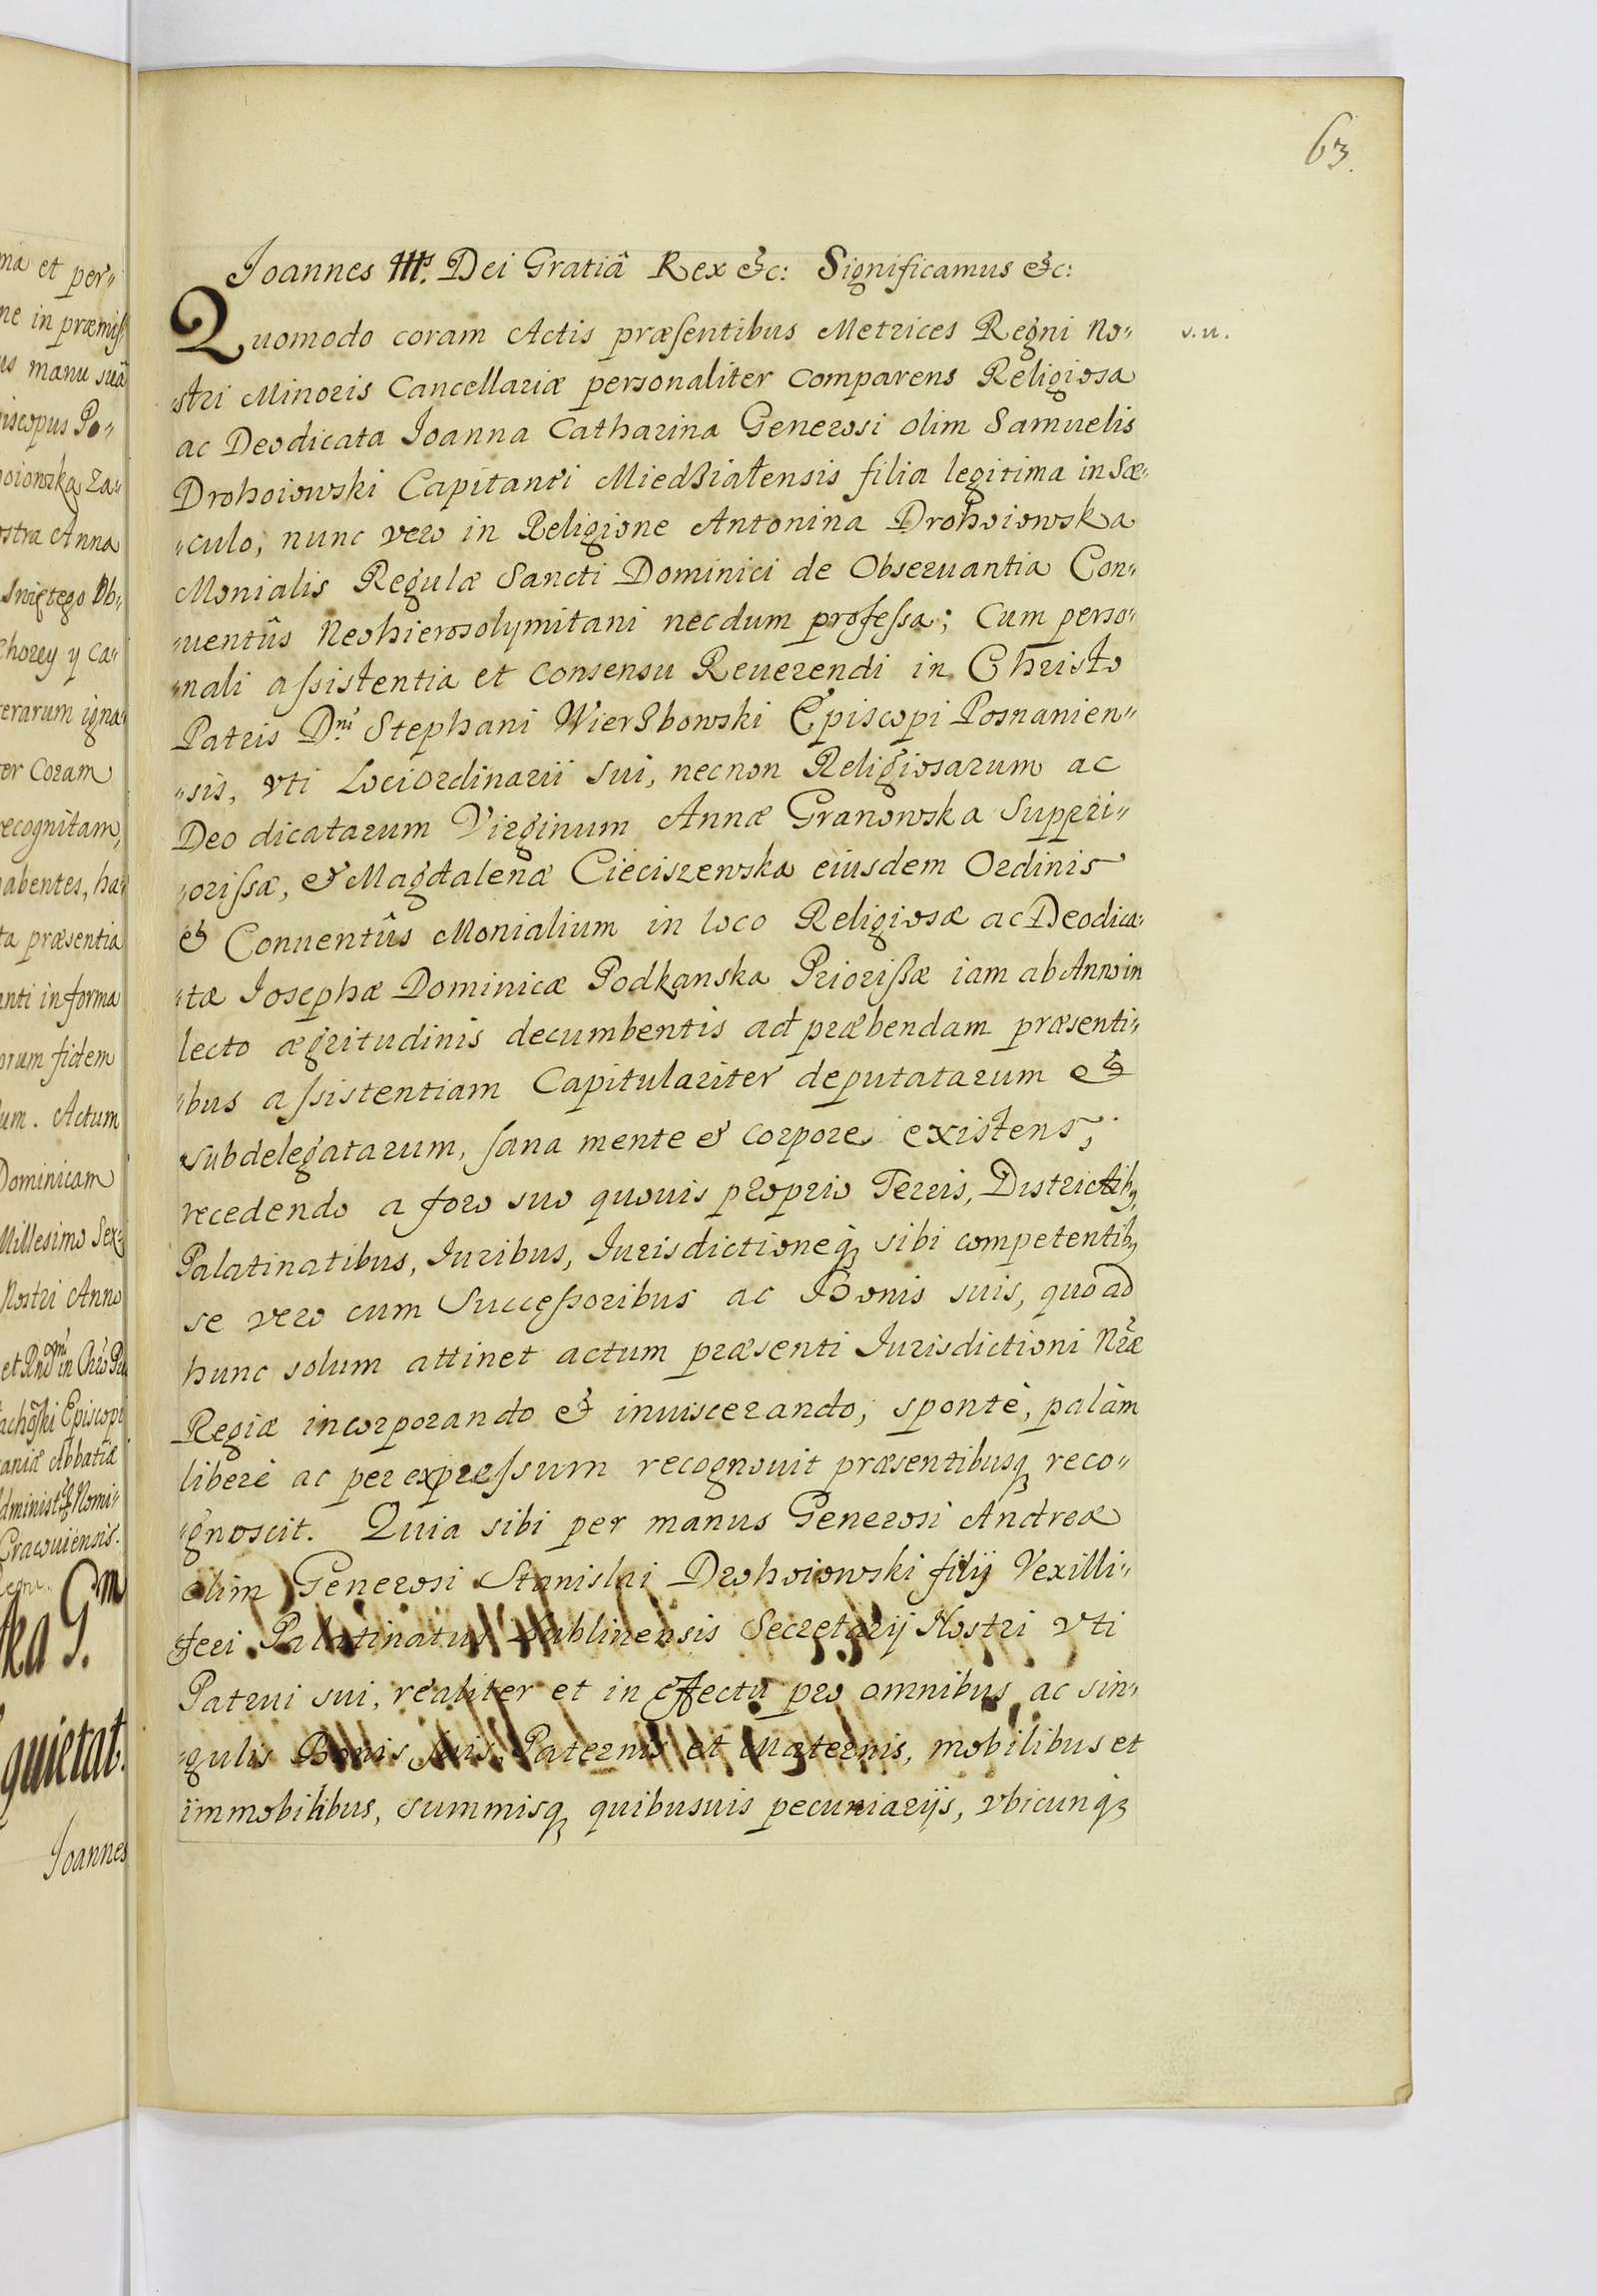 63.
Joannes III.s Dei Gratiâ Rex &c: Significamus &c:
Quomodo coram Actis præsentibus Metrices Regni No„ v.n.
„stri Minoris Cancellariæ personaliter comparens Religiosa
ac Deodicata Joanna Catharina Generosi olim Samuelis
Drohoiowski Capitanei Miedziatensis filia legitima in Sæ„
„culo, nunc vero in Religione Antonina Drohoiowska
Monialis Regulæ Sancti Dominici de Observantia Con„
„uentûs Neohierosolymitani necdum professa; Cum perso„
„nali assistentia et consensu Reuerendi in Christo
Patris Dni Stephani Wierzbowski Episcopi Posnanien„
„sis, vti Loci Ordinarii sui, necnon Religiosarum ac
Deo dicatarum Virginum Annæ Granowska Suppri„
„orissæ, & Magdalenæ Cieciszewska eiusdem Ordinis
& Conuentûs Monialium in loco Religiosæ ac Deodica„
„tæ Josephæ Dominicæ Podkanska Priorissæ iam ab Anno in
lecto ægritudinis decumbentis ad præbendam præsenti„
„bus assistentiam Capitulariter deputatarum &
subdelegatarum, sana mente & corpore existens,
recedendo a foro suo quouis proprio Terris, Districtibq,
Palatinatibus, Juribus, Jurisdictioneq sibi competentibq
se vero cum Successoribus ac Bonis suis, quoad
hunc solum attinet actum præsenti Jurisdictioni Nræ
Regiæ incorporando & inuiscerando, spontè, palàm
liberè ac per expressum recognouit præsentibusq reco„
„gnoscit. Quia sibi per manus Generosi Andreæ
olim Generosi Stanislai Drohoiowski filij Vexilli„
feri Palatinatus Lublinensis Secretarij Nostri vti
Patrui sui, realiter et in effectu pro omnibus ac sin„
„gulis Bonis suis, Paternis et Maternis, mobilibus et
immobilibus, summisq quibusuis pecuniarijs, vbicunq
ma et per„
ne in præmiss
us manu suâ
iscopus Po„
oiowska Za„
ostra Anna
Swiętego Ob„
Chorey y Ca„
terarum igna„
ter Coram
recognitam,
habentes, ha„
ta præsentia
anti in forma
orum fidem
um. Actum
Dominicam
Millesimo Sex„
Nostri Anno
Episcopi
aniæ Abbatiæ
Nomi„
Cracouiensis.
ka Gm.
quietat.
Joannes